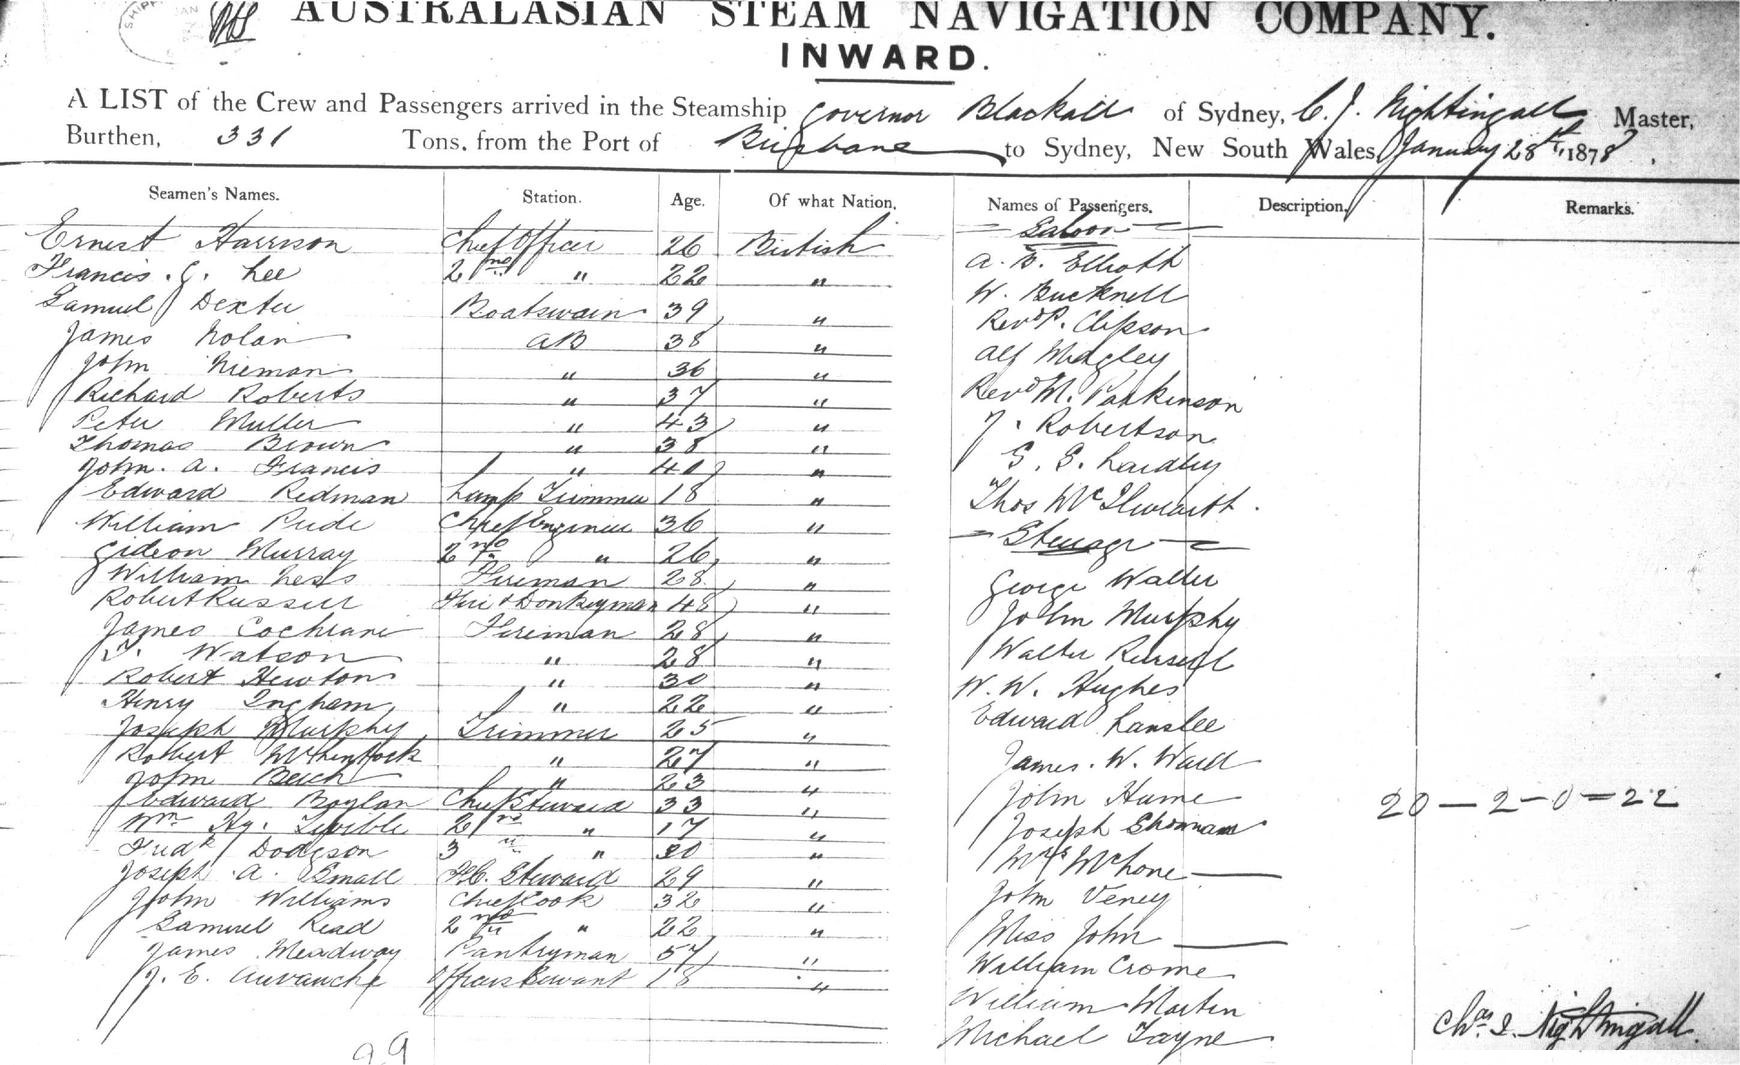 AUSTRALASIAN STEAM NAVIGATION COMPANY.
INWARD.
A LIST of the Crew and Passengers arrived in the Steamship Governor Blackall of Sydney, C. J. Nightingall Master,
Burthen, 331 Tons, from the Port of Brisbane to Sydney, New South Wales, January 28th, 1878.
Seamen's Names. Station. Age. Of what Nation. Names of Passengers. Description. Remarks.
Saloon
Ernest Harrison Chief Officer 26 British A. B. Elliott
Francis. G. Lee 2nd " 22 " W. Bucknell
Samuel Dexter Boatswain 39 " Revd P. Clipson
James Nolan AB 38 " Alf Midgley
John Nieman " 36 "
Richard Roberts " 37 " Revd M. Parkinson
Peter Muller " 43 " J. Robertson
Thomas Brown " 38 "
John. A. Francis " 40 " G. S. Lardley
Edward Redman Lamp Trimmer 18 " Thos McIlwraith.
William Pude Chief Engineer 36 " Steerage
Gideon Murray 2nd " 26 "
William Ness Fireman 28 " George Walter
Robert Russell Fire & Donkeyman 48 " John Murphy
James Cochrane Fireman 28 "
T. Watson " 28 " Walter Russell
Robert Hewton " 30 " W. W. Hughes
Henry Ingham " 22 " Edward Lanslee
Joseph Murphy Trimmer 25 "
Robert McLintock " 27 " James. W. Ward
John Beich " 23 "
Edward Boylan Chief Steward 33 " John Hume 20 - 2 - 0 = 22
Wm Hy. 2nd " 17 " Joseph
Fredk Dodgson 3 " " 30 " Mrs McLone
Joseph. A. Small F.C. Steward 29 "
John Williams Chief Cook 32 " John Veney
Samuel Read 2nd " 22 " Miss John
James Meadway Pantryman 57 " William Crome
J. E. Officers Servant 18 "
William Martin
Michael Tayne
Chas J. Nightingall.
29